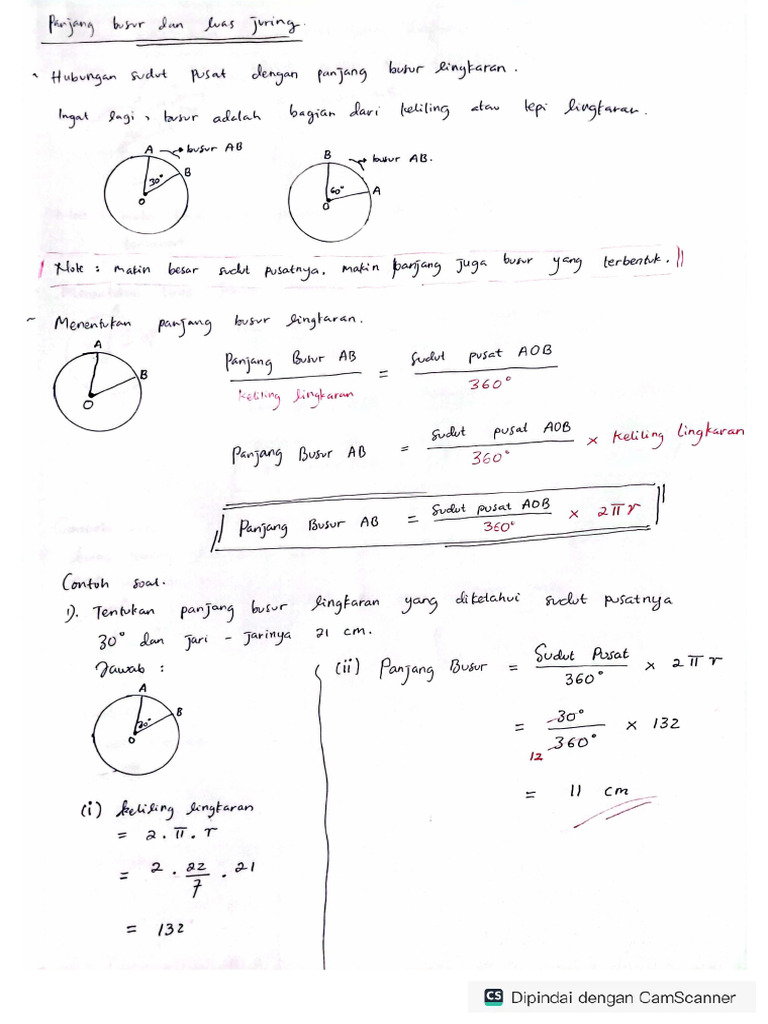 Panjang busur dan luas juring.
~ Hubungan sudut pusat dengan panjang busur lingkaran.
Ingat lagi, busur adalah bagian dari keliling atau tepi lingkaran.
A → busur AB
B
30°
O
B → busur AB.
60°
A
O
Note : makin besar sudut pusatnya, makin panjang juga busur yang terbentuk.
~ Menentukan panjang busur lingkaran.
A
B
O
Panjang Busur AB / keliling lingkaran = Sudut pusat AOB / 360°
Panjang Busur AB = Sudut pusat AOB / 360° × keliling lingkaran
Panjang Busur AB = Sudut pusat AOB / 360° × 2πr
Contoh soal.
1). Tentukan panjang busur lingkaran yang diketahui sudut pusatnya
30° dan jari - jarinya 21 cm.
Jawab :
A
B
30°
O
(i) keliling lingkaran
= 2 . π . r
= 2 . 22/7 . 21
= 132
(ii) Panjang Busur = Sudut Pusat / 360° × 2πr
= 30° / 360° × 132
12
= 11 cm
CS Dipindai dengan CamScanner